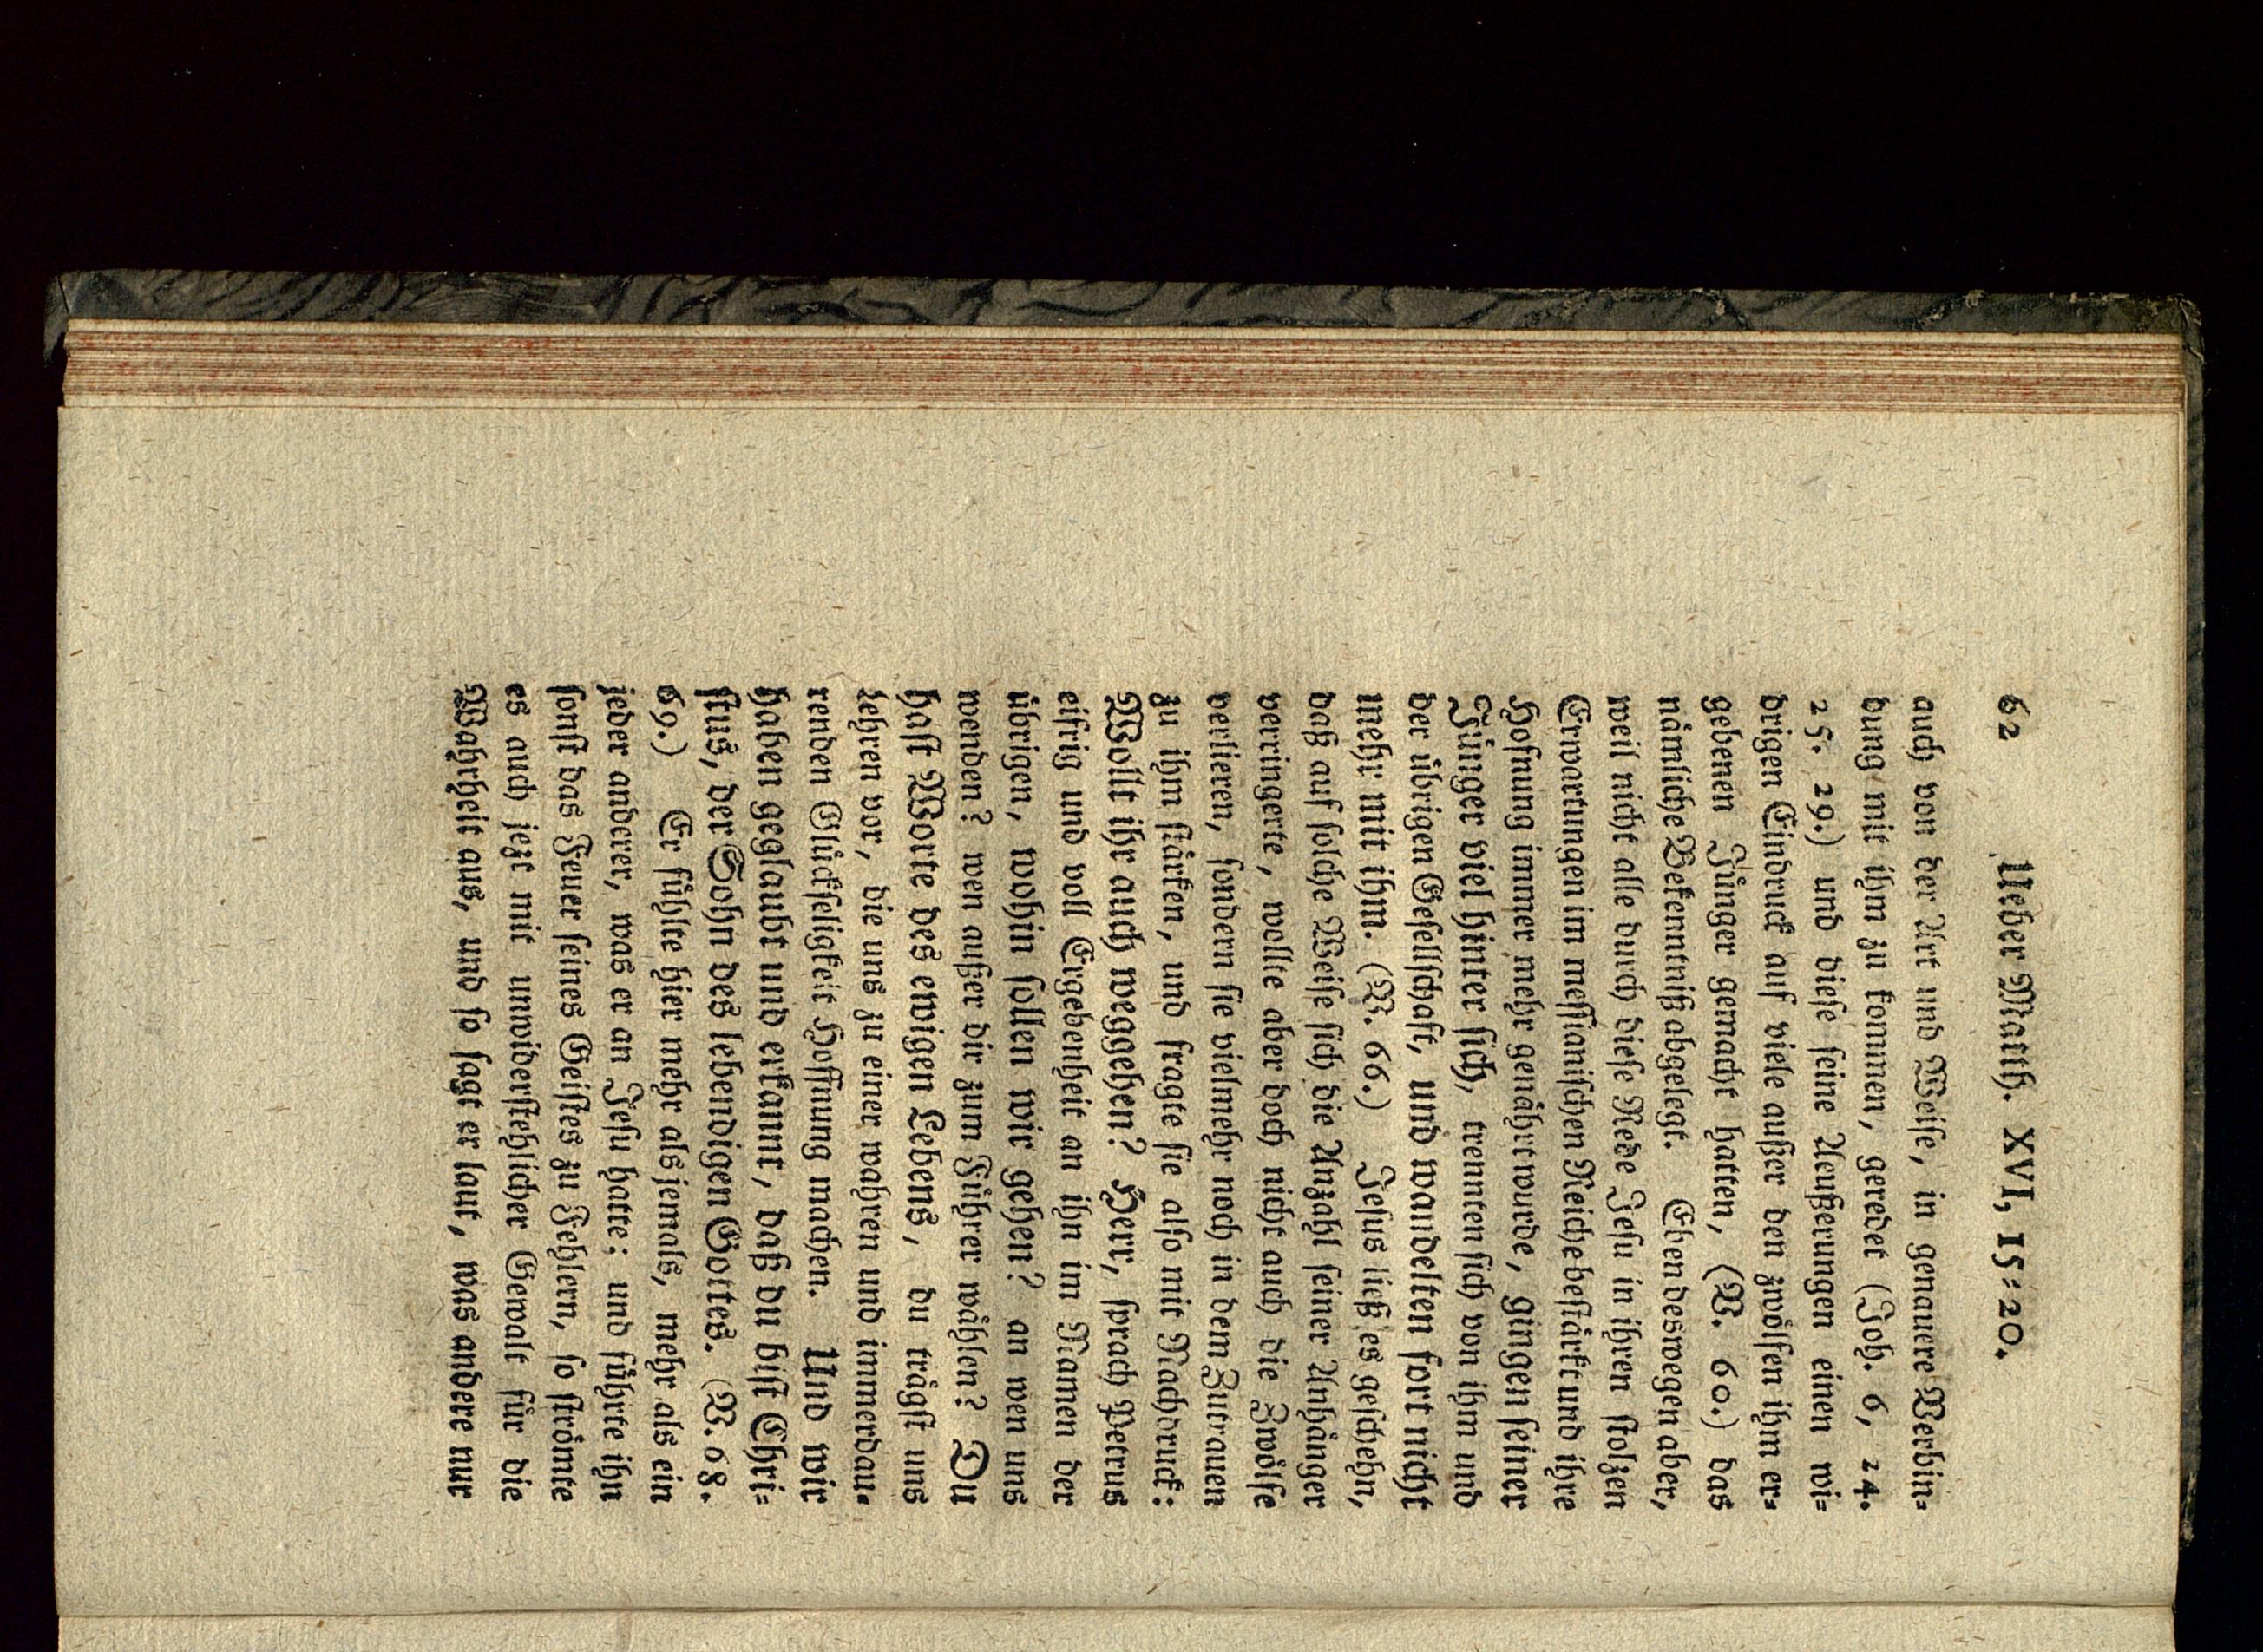 62 Ueber Matth. XVI, 15=20.
auch von der Art und Weise, in genauere Verbin=
dung mit ihm zu kommen, geredet (Joh. 6, 24.
25. 29.) und diese seine Aeußerungen einen wi=
drigen Eindruck auf viele außer den zwölfen ihm er=
gebenen Jünger gemacht hatten, (V. 60.) das
nämliche Bekenntniß abgelegt. Eben deswegen aber,
weil nicht alle durch diese Rede Jesu in ihren stolzen
Erwartungen im messianischen Reiche bestärkt und ihre
Hofnung immer mehr genährt wurde, gingen seiner
Jünger viel hinter sich, trennten sich von ihm und
der übrigen Gesellschaft, und wandelten fort nicht
mehr mit ihm. (V. 66.) Jesus ließ es geschehn,
daß auf solche Weise sich die Anzahl seiner Anhänger
verringerte, wollte aber doch nicht auch die Zwölfe
verlieren, sondern sie vielmehr noch in dem Zutrauen
zu ihm stärken, und fragte sie also mit Nachdruck:
Wollt ihr auch weggehen? Herr, sprach Petrus
eifrig und voll Ergebenheit an ihn im Namen der
übrigen, wohin sollen wir gehen? an wen uns
wenden? wen außer dir zum Führer wählen? Du
hast Worte des ewigen Lebens, du trägst uns
Lehren vor, die uns zu einer wahren und immerdau=
renden Glückseligkeit Hoffnung machen. Und wir
haben geglaubt und erkannt, daß du bist Chri=
stus, der Sohn des lebendigen Gottes. (V. 68.
69.) Er fühlte hier mehr als jemals, mehr als ein
jeder anderer, was er an Jesu hatte; und führte ihn
sonst das Feuer seines Geistes zu Fehlern, so strömte
es auch jezt mit unwiderstehlicher Gewalt für die
Wahrheit aus, und so sagt er laut, was andere nur